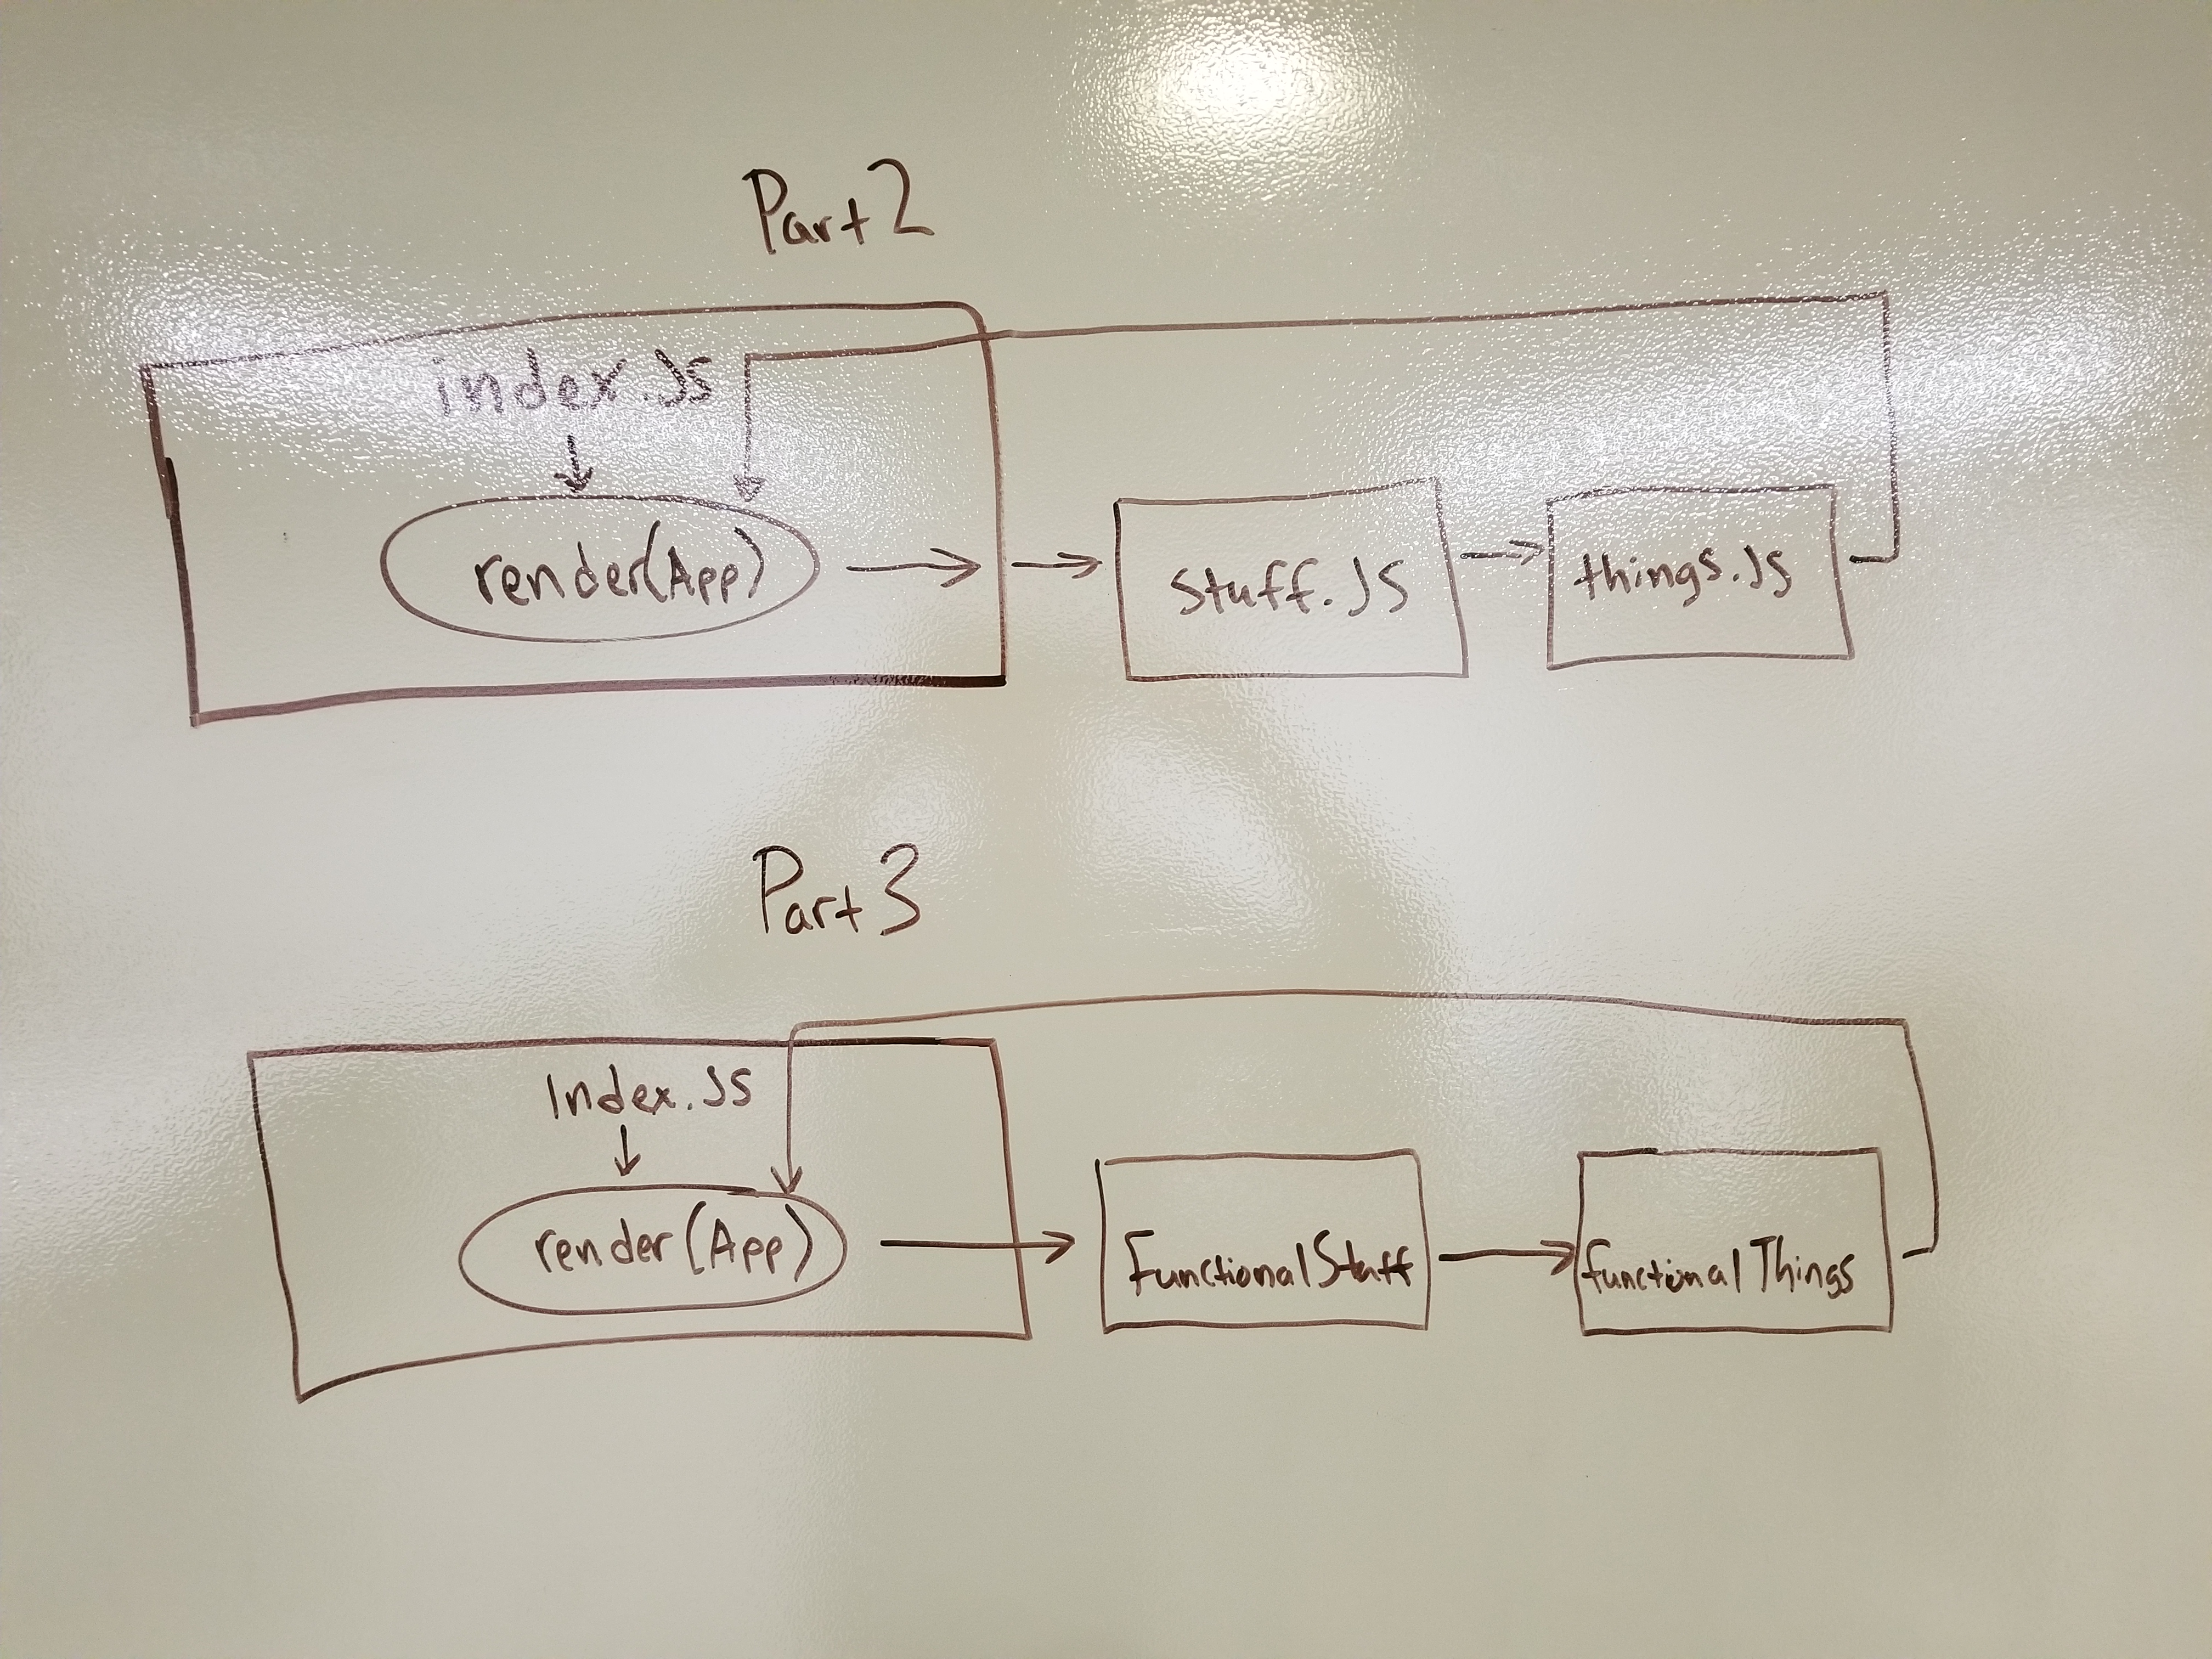 Part 2
index.JS
render(App)
stuff.JS
things.JS
Part 3
Index.JS
render(App)
FunctionalStuff
functionalThings